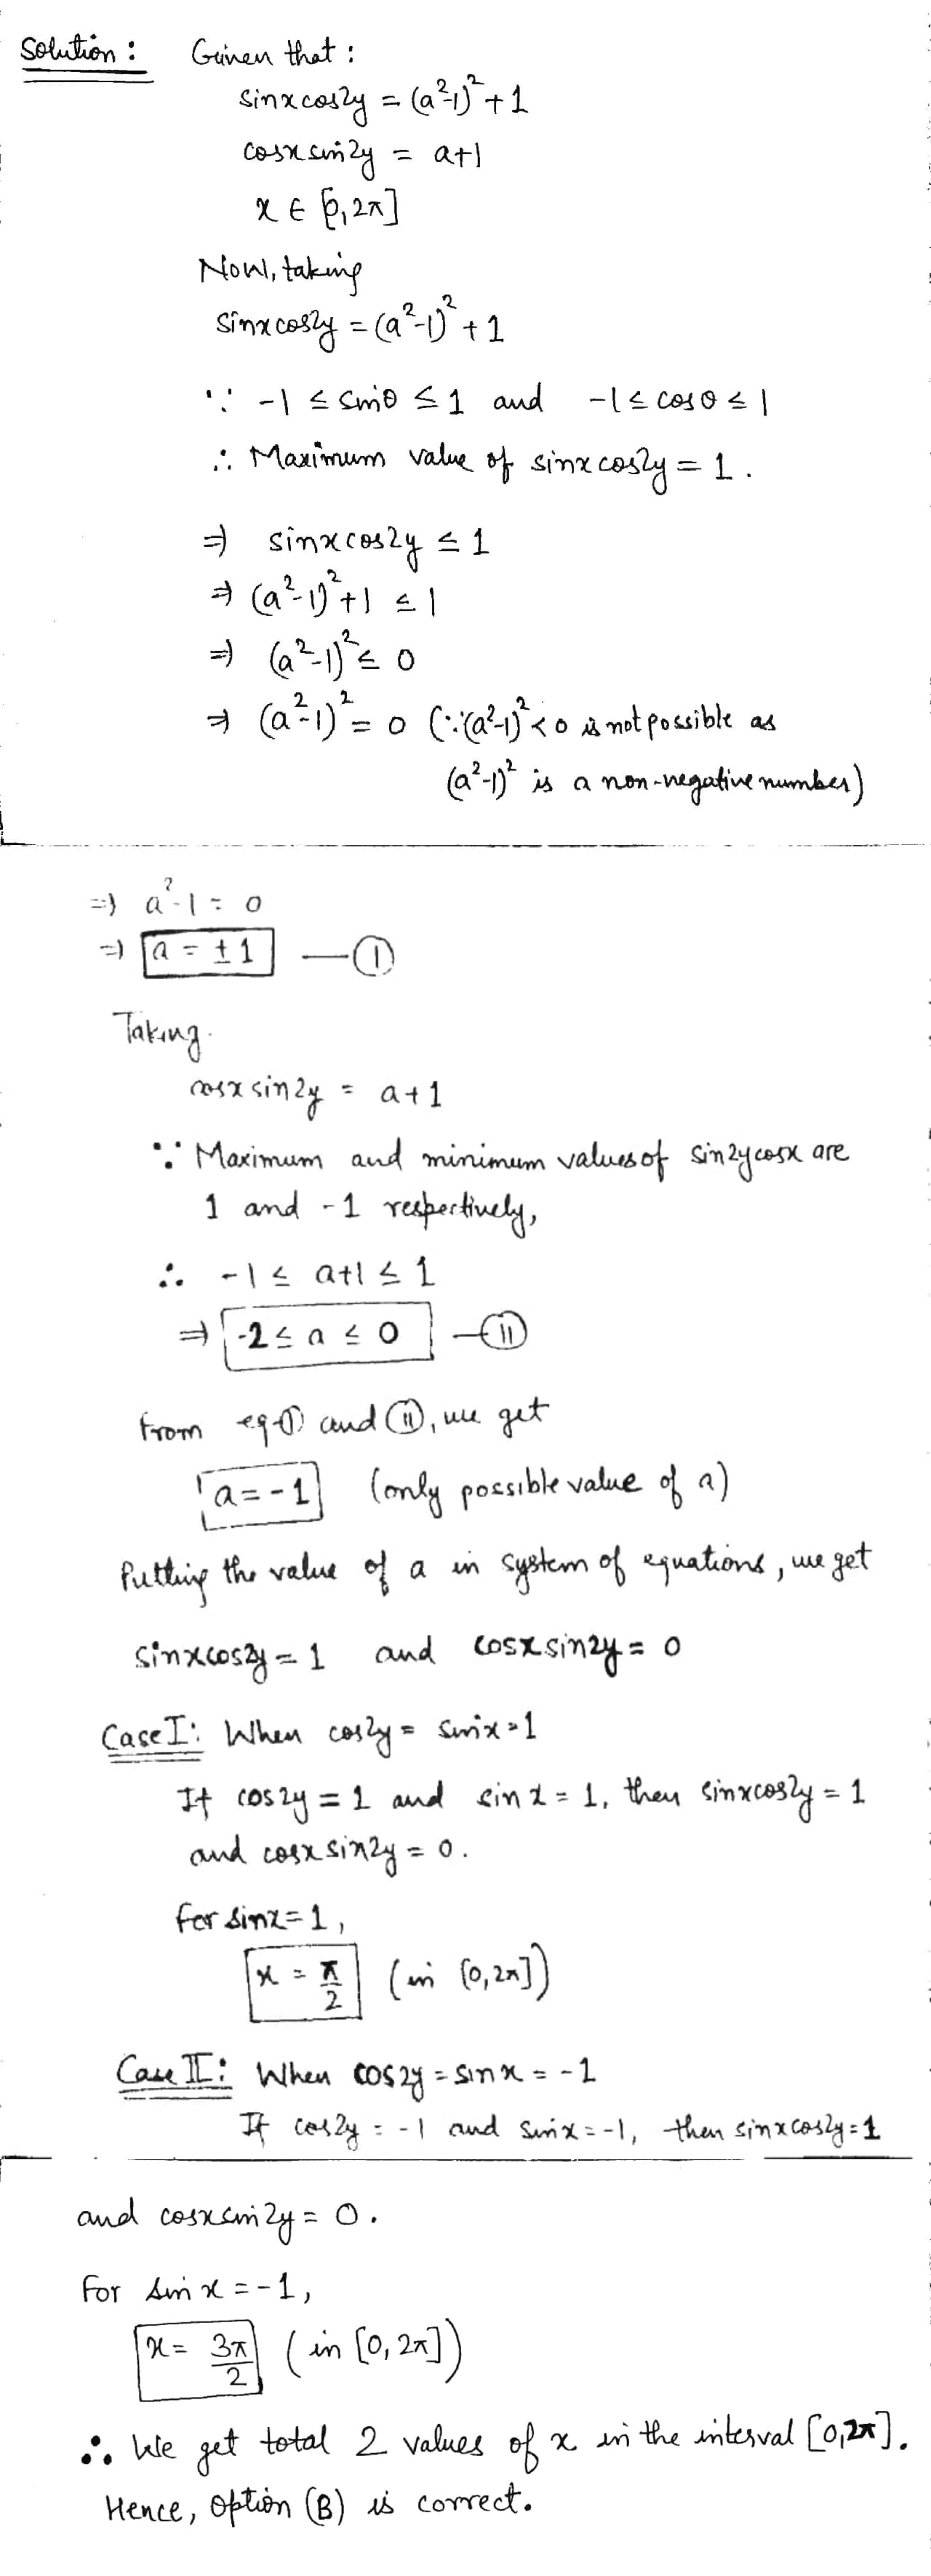 Solution : Given that :
sinxcos2y = (a²-1)²+1
cosxsin2y = a+1
x ∈ [0,2π]
Now, taking
sinxcos2y = (a²-1)² + 1
∵ -1 ≤ sinθ ≤ 1 and -1 ≤ cosθ ≤ 1
∴ Maximum value of sinxcos2y = 1.
⇒ sinxcos2y ≤ 1
⇒ (a²-1)²+1 ≤ 1
⇒ (a²-1)² ≤ 0
⇒ (a²-1)² = 0 (∵(a²-1)²<0 is not possible as
(a²-1)² is a non-negative number)
⇒ a²-1 = 0
⇒ a = ±1 — Ⓘ
Taking
cosxsin2y = a+1
∵ Maximum and minimum values of sin2ycosx are
1 and -1 respectively,
∴ -1 ≤ a+1 ≤ 1
⇒ -2 ≤ a ≤ 0 — (II)
From eq Ⓘ and (II), we get
a=-1 (only possible value of a)
Putting the value of a in system of equations, we get
sinxcos2y = 1 and cosxsin2y = 0
Case I: When cos2y = sinx = 1
If cos2y = 1 and sinx = 1, then sinxcos2y = 1
and cosxsin2y = 0.
For sinx = 1,
x = π/2 (in [0,2π])
Case II: When cos2y = sinx = -1
If cos2y = -1 and sinx = -1, then sinxcos2y = 1
and cosxsin2y = 0.
For sinx = -1,
x = 3π/2 (in [0,2π])
∴ We get total 2 values of x in the interval [0,2π].
Hence, Option (B) is correct.